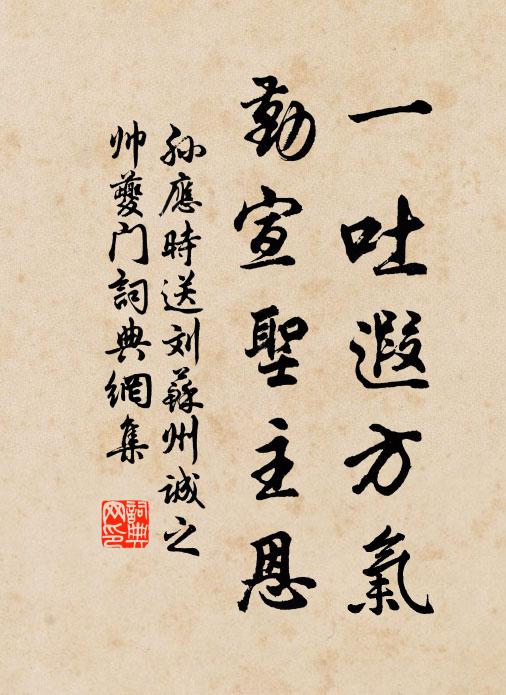 一吐遐方氣
勤宣聖主恩
孙應時送刘蘇州诚之
帅夔门詞典網集
詞典网印